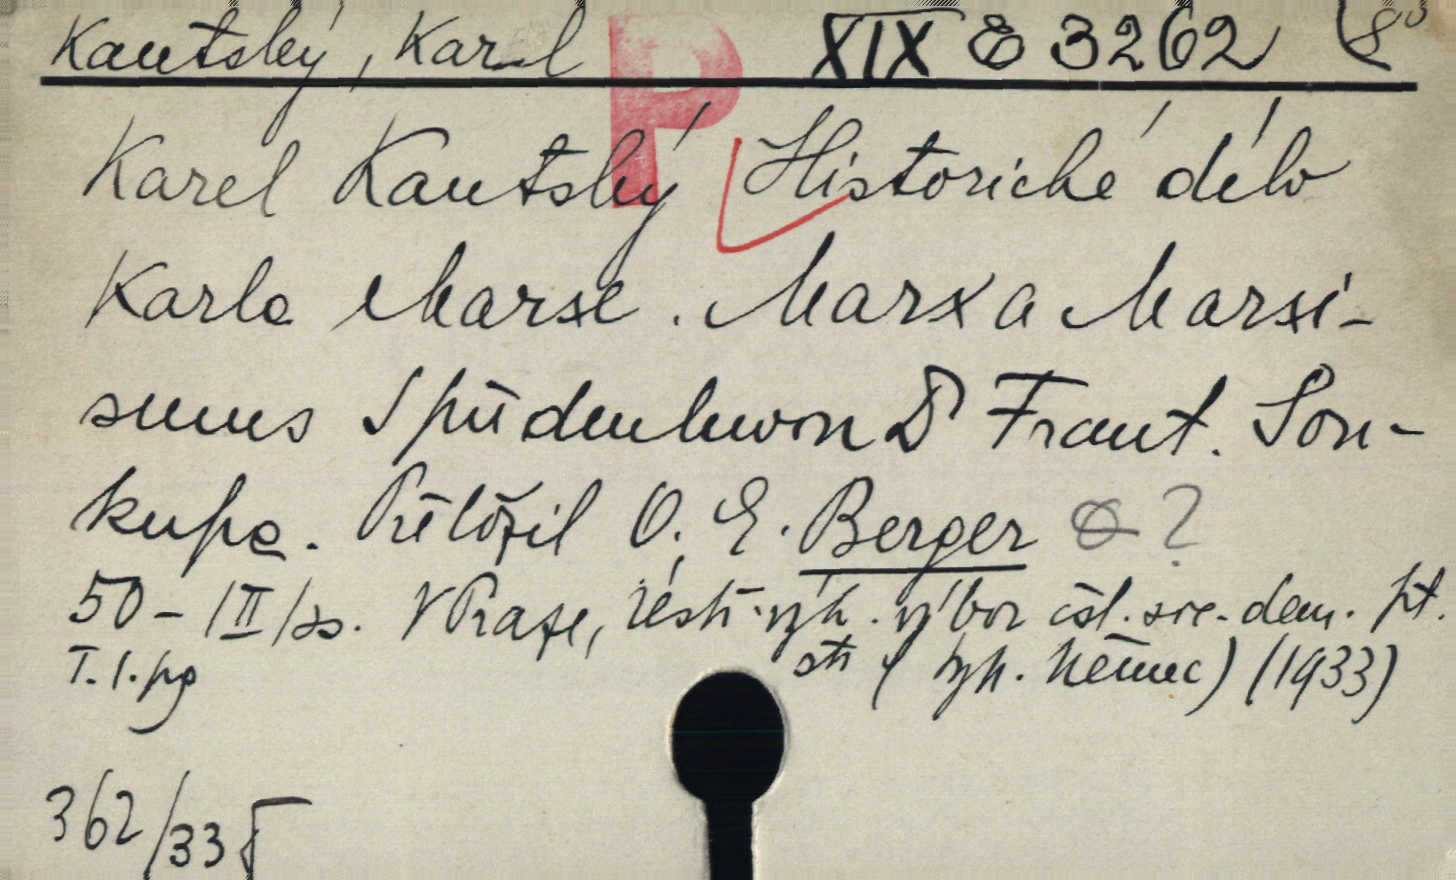 Kautský, Karel P XIX E 3262 8°
Karel Kautský Historické dílo
Karla Marxe. Marx a Marxi-
smus S původem Dr Frant. Sou-
kupa. Přeložil O. E. Berger ?
50 - /II/ ss. V Praze, ústř. výk. výbor čsl. soc. dem. pt.
T. I. pg str ( typ. Němec) (1933)
362/33